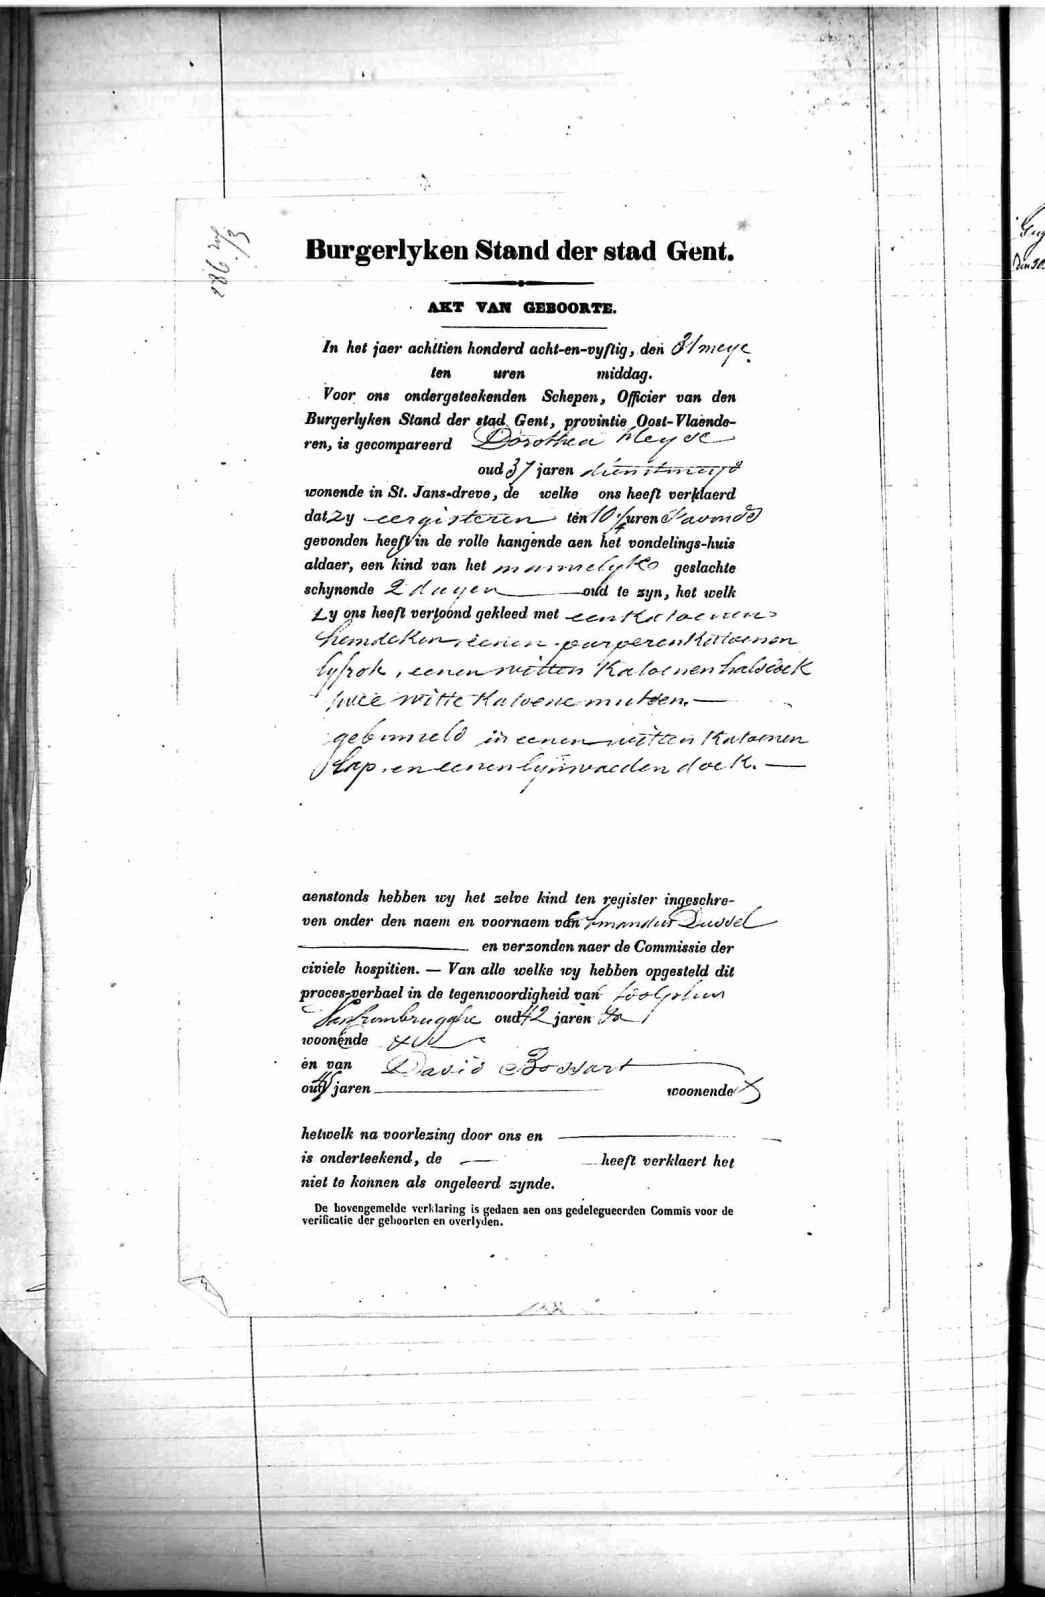 Burgerlyken Stand der stad Gent.
AKT VAN GEBOORTE.
In het jaer achttien honderd acht-en-vyftig, den 31 meye
ten uren middag.
Voor ons ondergeteekenden Schepen, Officier van den
Burgerlyken Stand der stad Gent, provintie Oost-Vlaende-
ren, is gecompareerd Dorothea
oud 37 jaren dienstmeyd
wonende in St. Jans-dreve, de welke ons heeft verklaerd
dat zy eergisteren ten 10 uren s'avonds
gevonden heeft in de rolle hangende aen het vondelings-huis
aldaer, een kind van het mannelyke geslachte
schynende 2 dagen oud te zyn, het welk
zy ons heeft vertoond gekleed met een katoenen
hemdeken, eenen purperen katoenen
lyfrok, eenen witten katoenen halsdoek
twee witte katoene mutsen,
gebunseld in eenen witten katoenen
slap, en eenen lynwaeden doek.
aenstonds hebben wy het zelve kind ten register ingeschre-
ven onder den naem en voornaem van Amandus Dussel
en verzonden naer de Commissie der
civiele hospitien. — Van alle welke wy hebben opgesteld dit
proces-verbael in de tegenwoordigheid van
oud 42 jaren
woonende
en van David Bossart
oud jaren woonende
hetwelk na voorlezing door ons en
is onderteekend, de heeft verklaert het
niet te konnen als ongeleerd zynde.
De bovengemelde verklaring is gedaen aen ons gedelegueerden Commis voor de
verificatie der geboorten en overlyden.